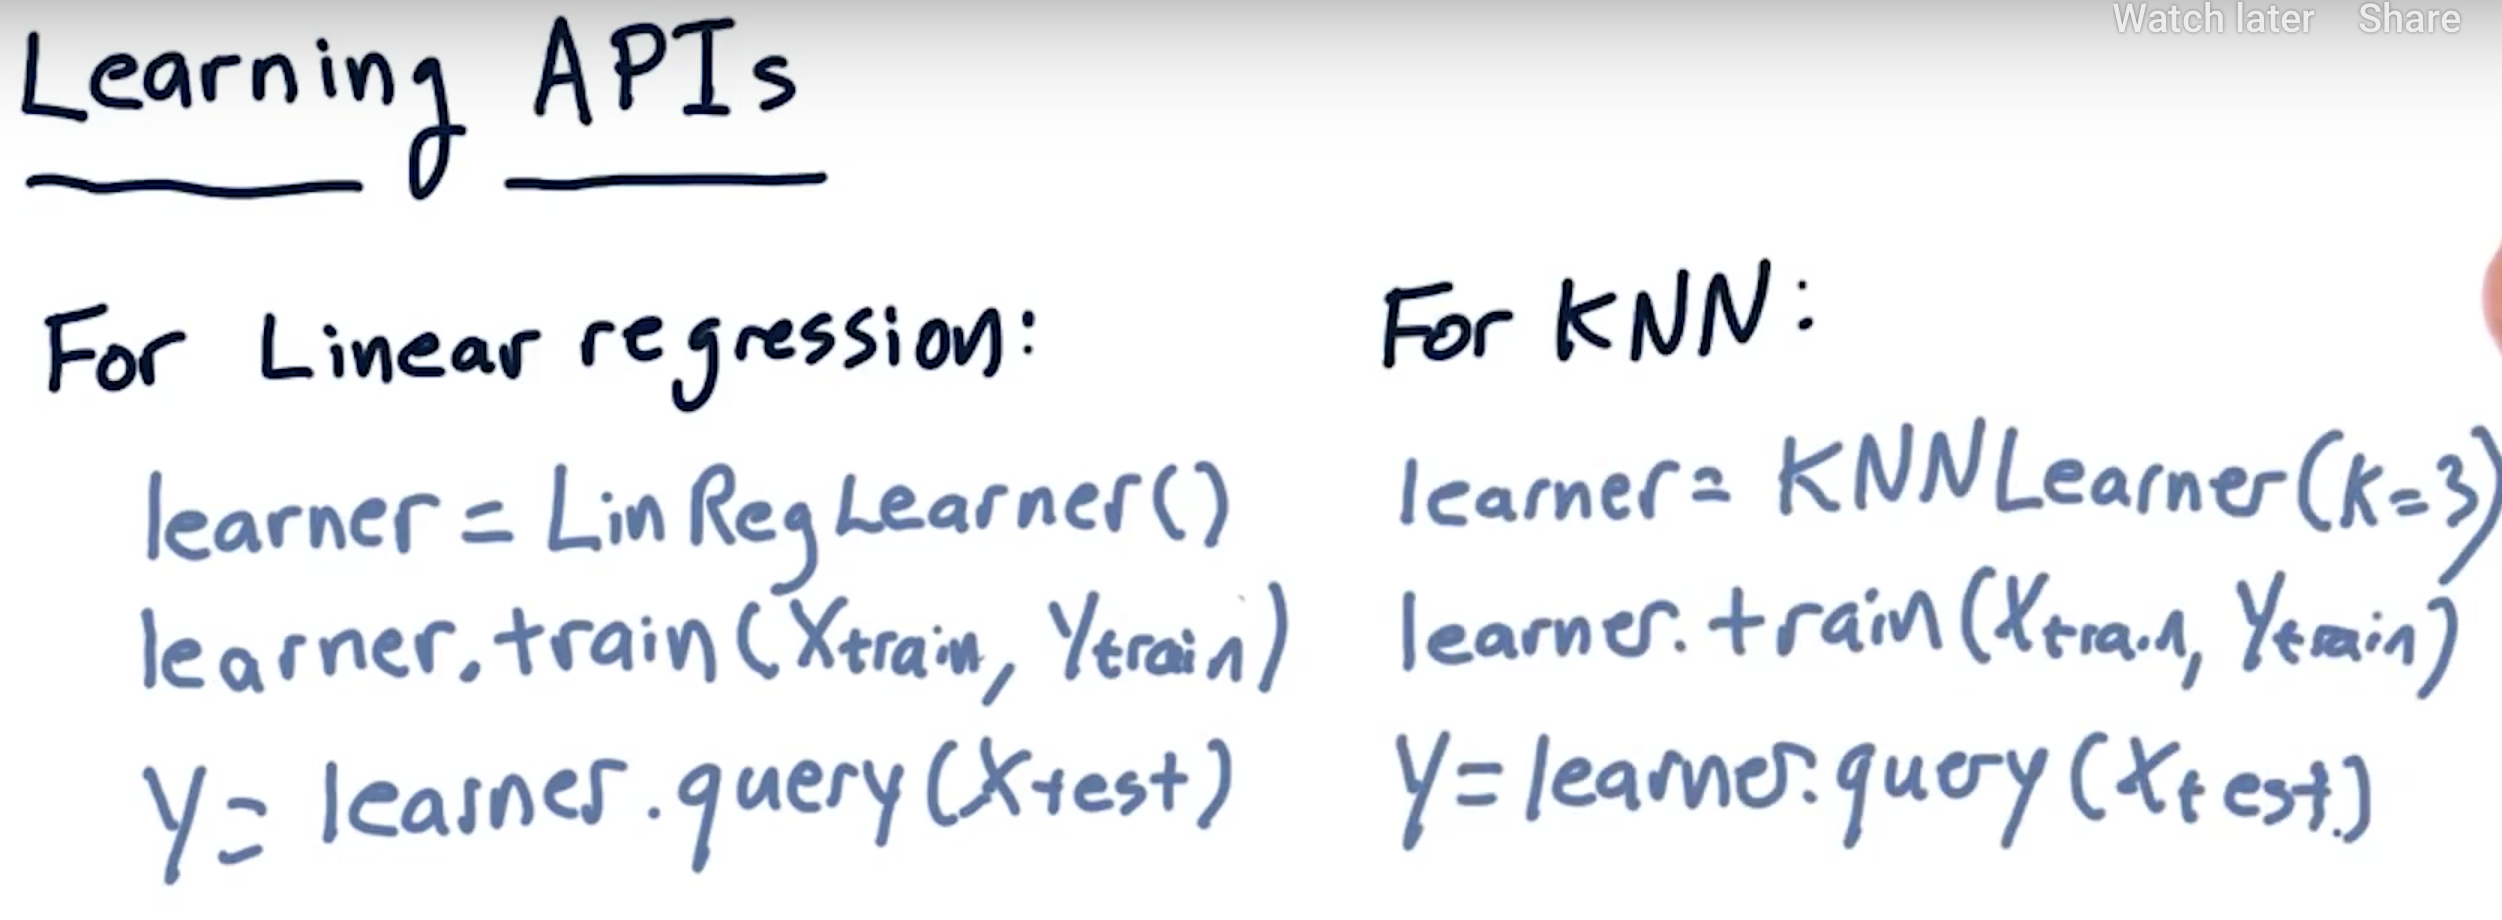 Watch later Share
Learning APIs
For Linear regression:
learner = LinRegLearner()
learner.train(Xtrain, Ytrain)
y = learner.query(Xtest)
For KNN:
learner = KNNLearner(k=3)
learner.train(Xtrain, Ytrain)
y = learner.query(Xtest)